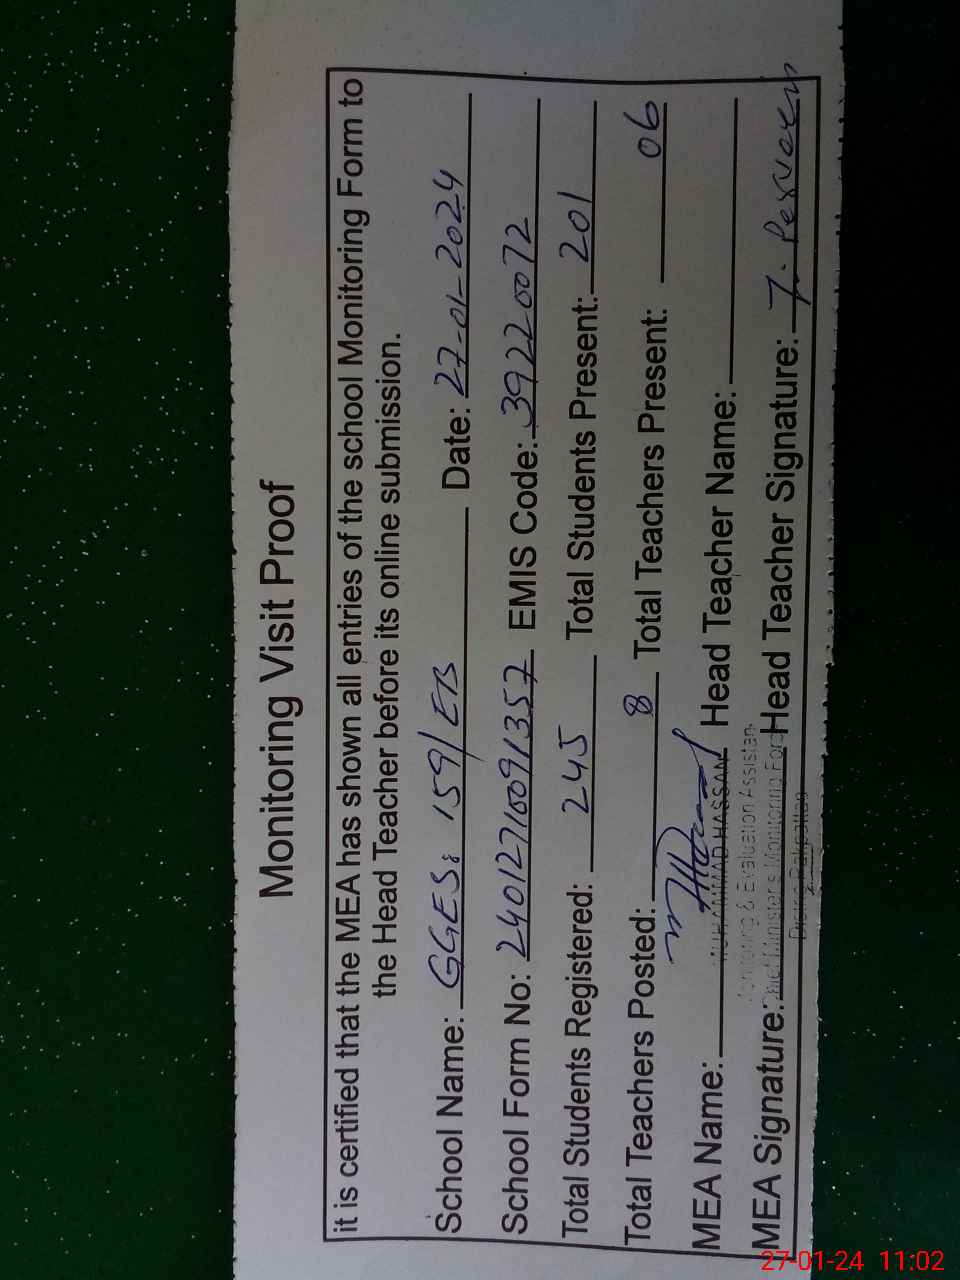 Monitoring Visit Proof
it is certified that the MEA has shown all entries of the school Monitoring Form to
the Head Teacher before its online submission.
School Name: GGES: 159/EB Date: 27-01-2024
School Form No: 24012710091357 EMIS Code: 39220072
Total Students Registered: 245 Total Students Present: 201
Total Teachers Posted: 8 Total Teachers Present: 06
MEA Name: MUHAMMAD HASSAN Head Teacher Name:
Monitoring & Evaluation Assistan
MEA Signature: Chief Minister's Monitoring Force Head Teacher Signature: T. Perveen
Pakpattan
27-01-24 11:02